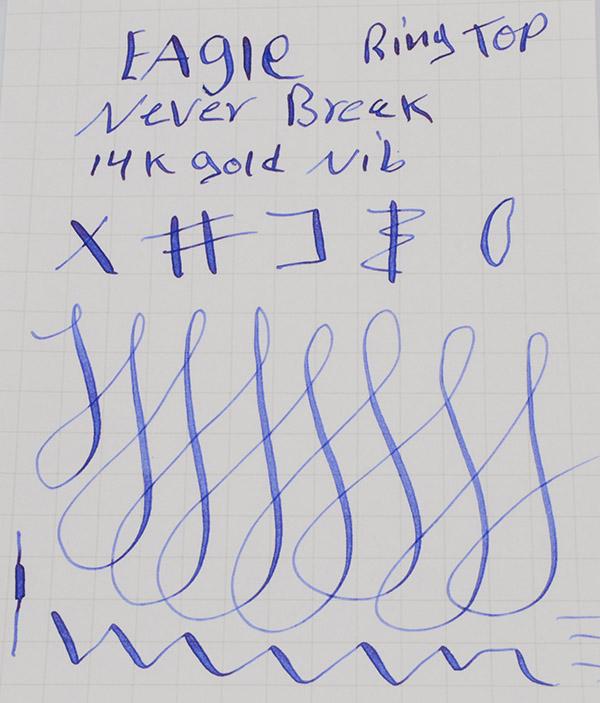 EAgle Ring TOP
Never Break
14K gold Nib
X # ] 0